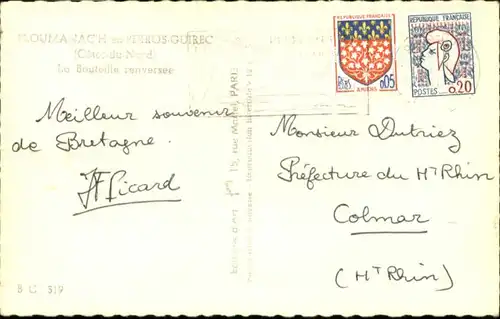 PLOUMANAC'H en PERROS-GUIREC
(Côtes-du-Nord)
La Bouteille renversée
REPUBLIQUE FRANÇAISE
POSTES
0,05
AMIENS
REPUBLIQUE FRANÇAISE
POSTES 0,20
Meilleur souvenir
de Bretagne.
Picard
Monsieur Dutriez
Préfecture du Ht Rhin
Colmar
(Ht Rhin)
PARIS
B C 319